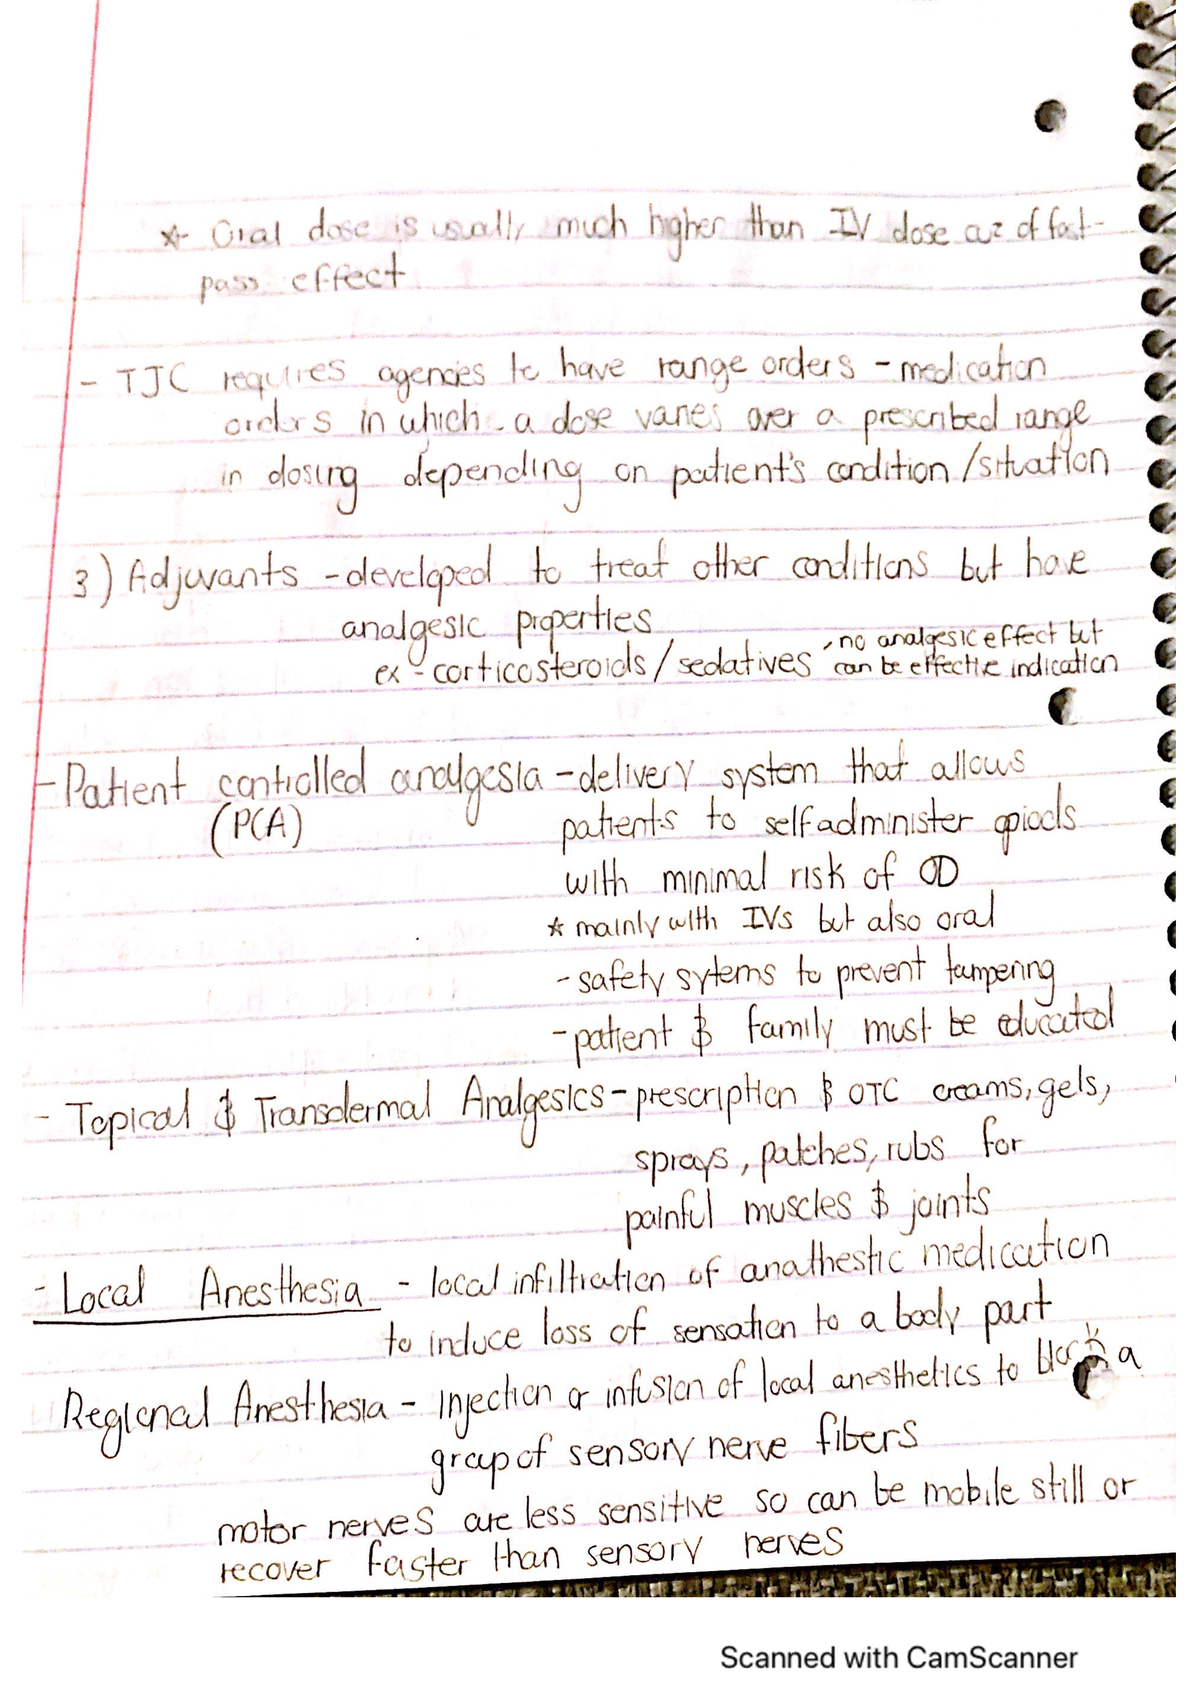 * Oral dose is usually much higher than IV dose cuz of fast-
pass effect
- TJC requires agencies to have range orders - medication
orders in which a dose varies over a prescribed range
in dosing depending on patient's condition/situation
3) Adjuvants - developed to treat other conditions but have
analgesic properties
ex - corticosteroids/sedatives
no analgesic effect but
can be effective indication
- Patient controlled analgesia - delivery system that allows
(PCA) patients to selfadminister opiods
with minimal risk of OD
* mainly with IVs but also oral
- safety sytems to prevent tampering
- patient & family must be educated
- Topical & Transdermal Analgesics - prescription & OTC creams, gels,
sprays, patches, rubs for
painful muscles & joints
- Local Anesthesia - local infiltration of anathestic medication
to induce loss of sensation to a body part
Regional Anesthesia - injection or infusion of local anesthetics to block a
group of sensory nerve fibers
motor nerves are less sensitive so can be mobile still or
recover faster than sensory nerves
Scanned with CamScanner